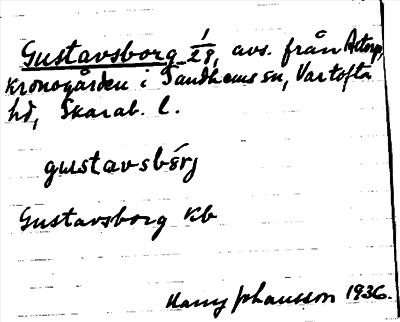 Gustavsborg 1/28, avs. från Åstorp,
kronogården i Sandhems sn, Vartofta
hd, Skarab. l.
gustavsbórj
Gustavsborg kb
Harry Johansson 1936.